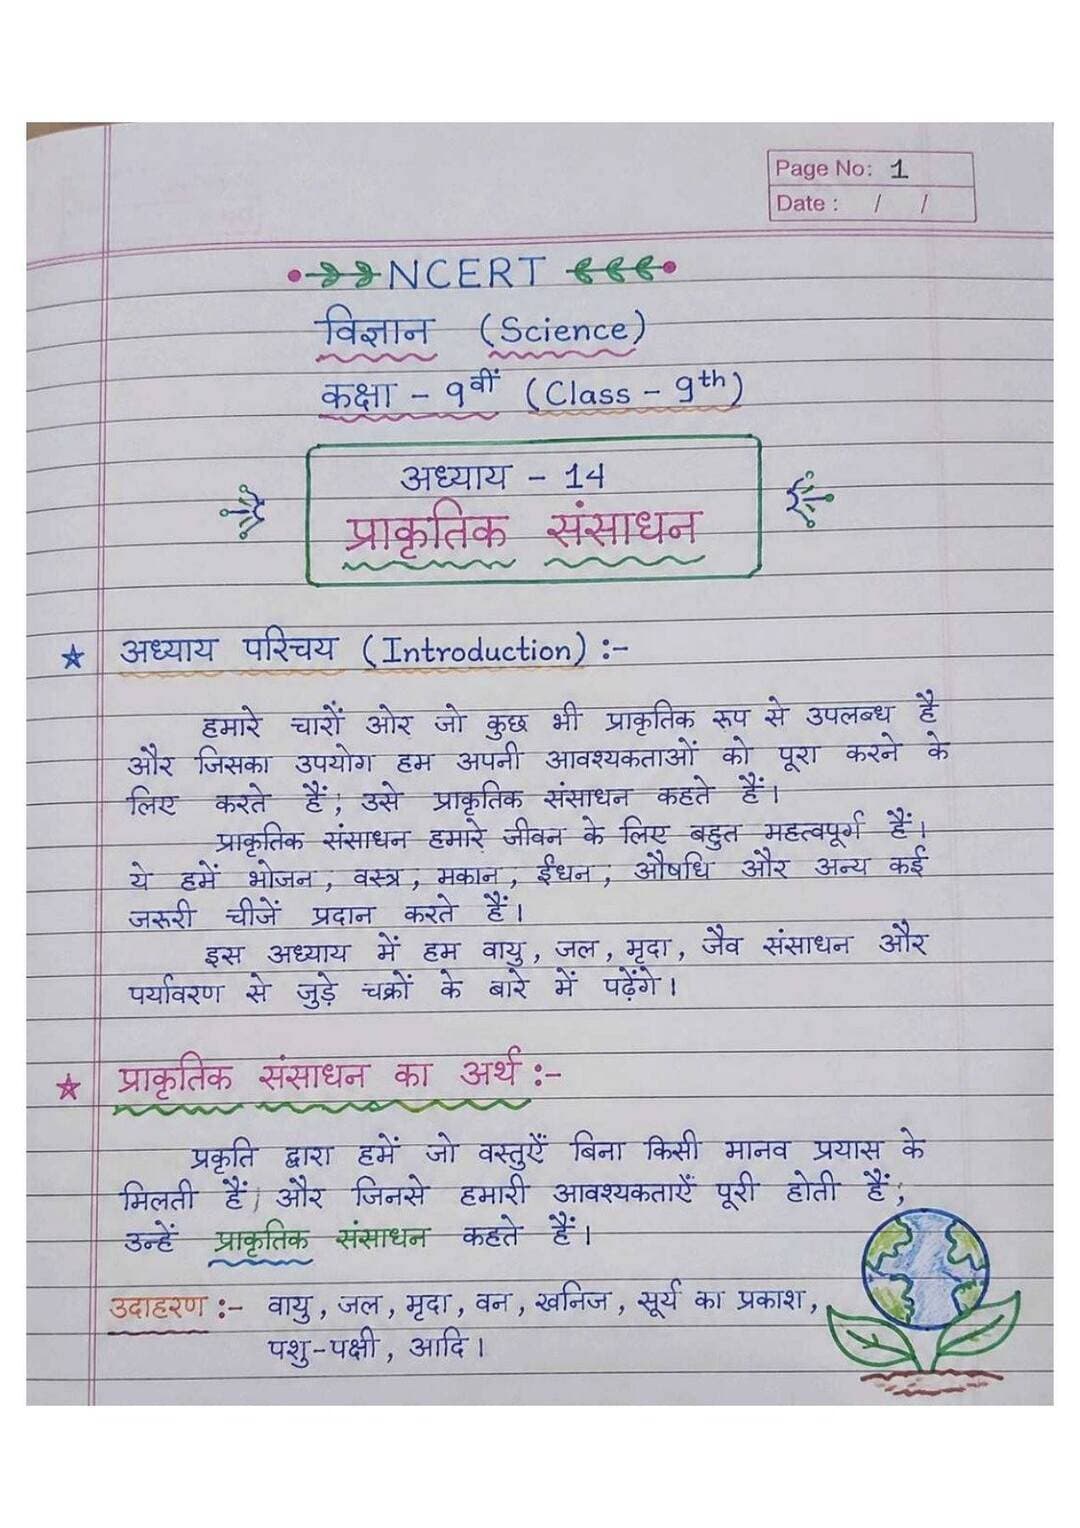 Page No: 1
Date : / /
NCERT
विज्ञान (Science)
कक्षा - 9वीं (Class - 9th)
अध्याय - 14
प्राकृतिक संसाधन
अध्याय परिचय (Introduction) :-
हमारे चारों ओर जो कुछ भी प्राकृतिक रूप से उपलब्ध है
और जिसका उपयोग हम अपनी आवश्यकताओं को पूरा करने के
लिए करते हैं, उसे प्राकृतिक संसाधन कहते हैं।
प्राकृतिक संसाधन हमारे जीवन के लिए बहुत महत्वपूर्ण हैं।
ये हमें भोजन, वस्त्र, मकान, ईंधन, औषधि और अन्य कई
जरूरी चीजें प्रदान करते हैं।
इस अध्याय में हम वायु, जल, मृदा, जैव संसाधन और
पर्यावरण से जुड़े चक्रों के बारे में पढ़ेंगे।
प्राकृतिक संसाधन का अर्थ :-
प्रकृति द्वारा हमें जो वस्तुऐं बिना किसी मानव प्रयास के
मिलती हैं, और जिनसे हमारी आवश्यकताऐं पूरी होती हैं,
उन्हें प्राकृतिक संसाधन कहते हैं।
उदाहरण :- वायु, जल, मृदा, वन, खनिज, सूर्य का प्रकाश,
पशु-पक्षी, आदि।